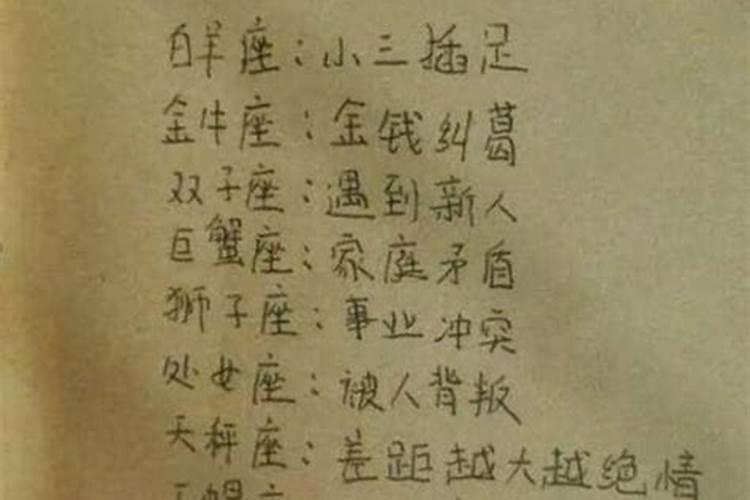 白羊座：小三插足
金牛座：金钱纠葛
双子座：遇到新人
巨蟹座：家庭矛盾
狮子座：事业冲突
处女座：被人背叛
天秤座：差距越大越绝情